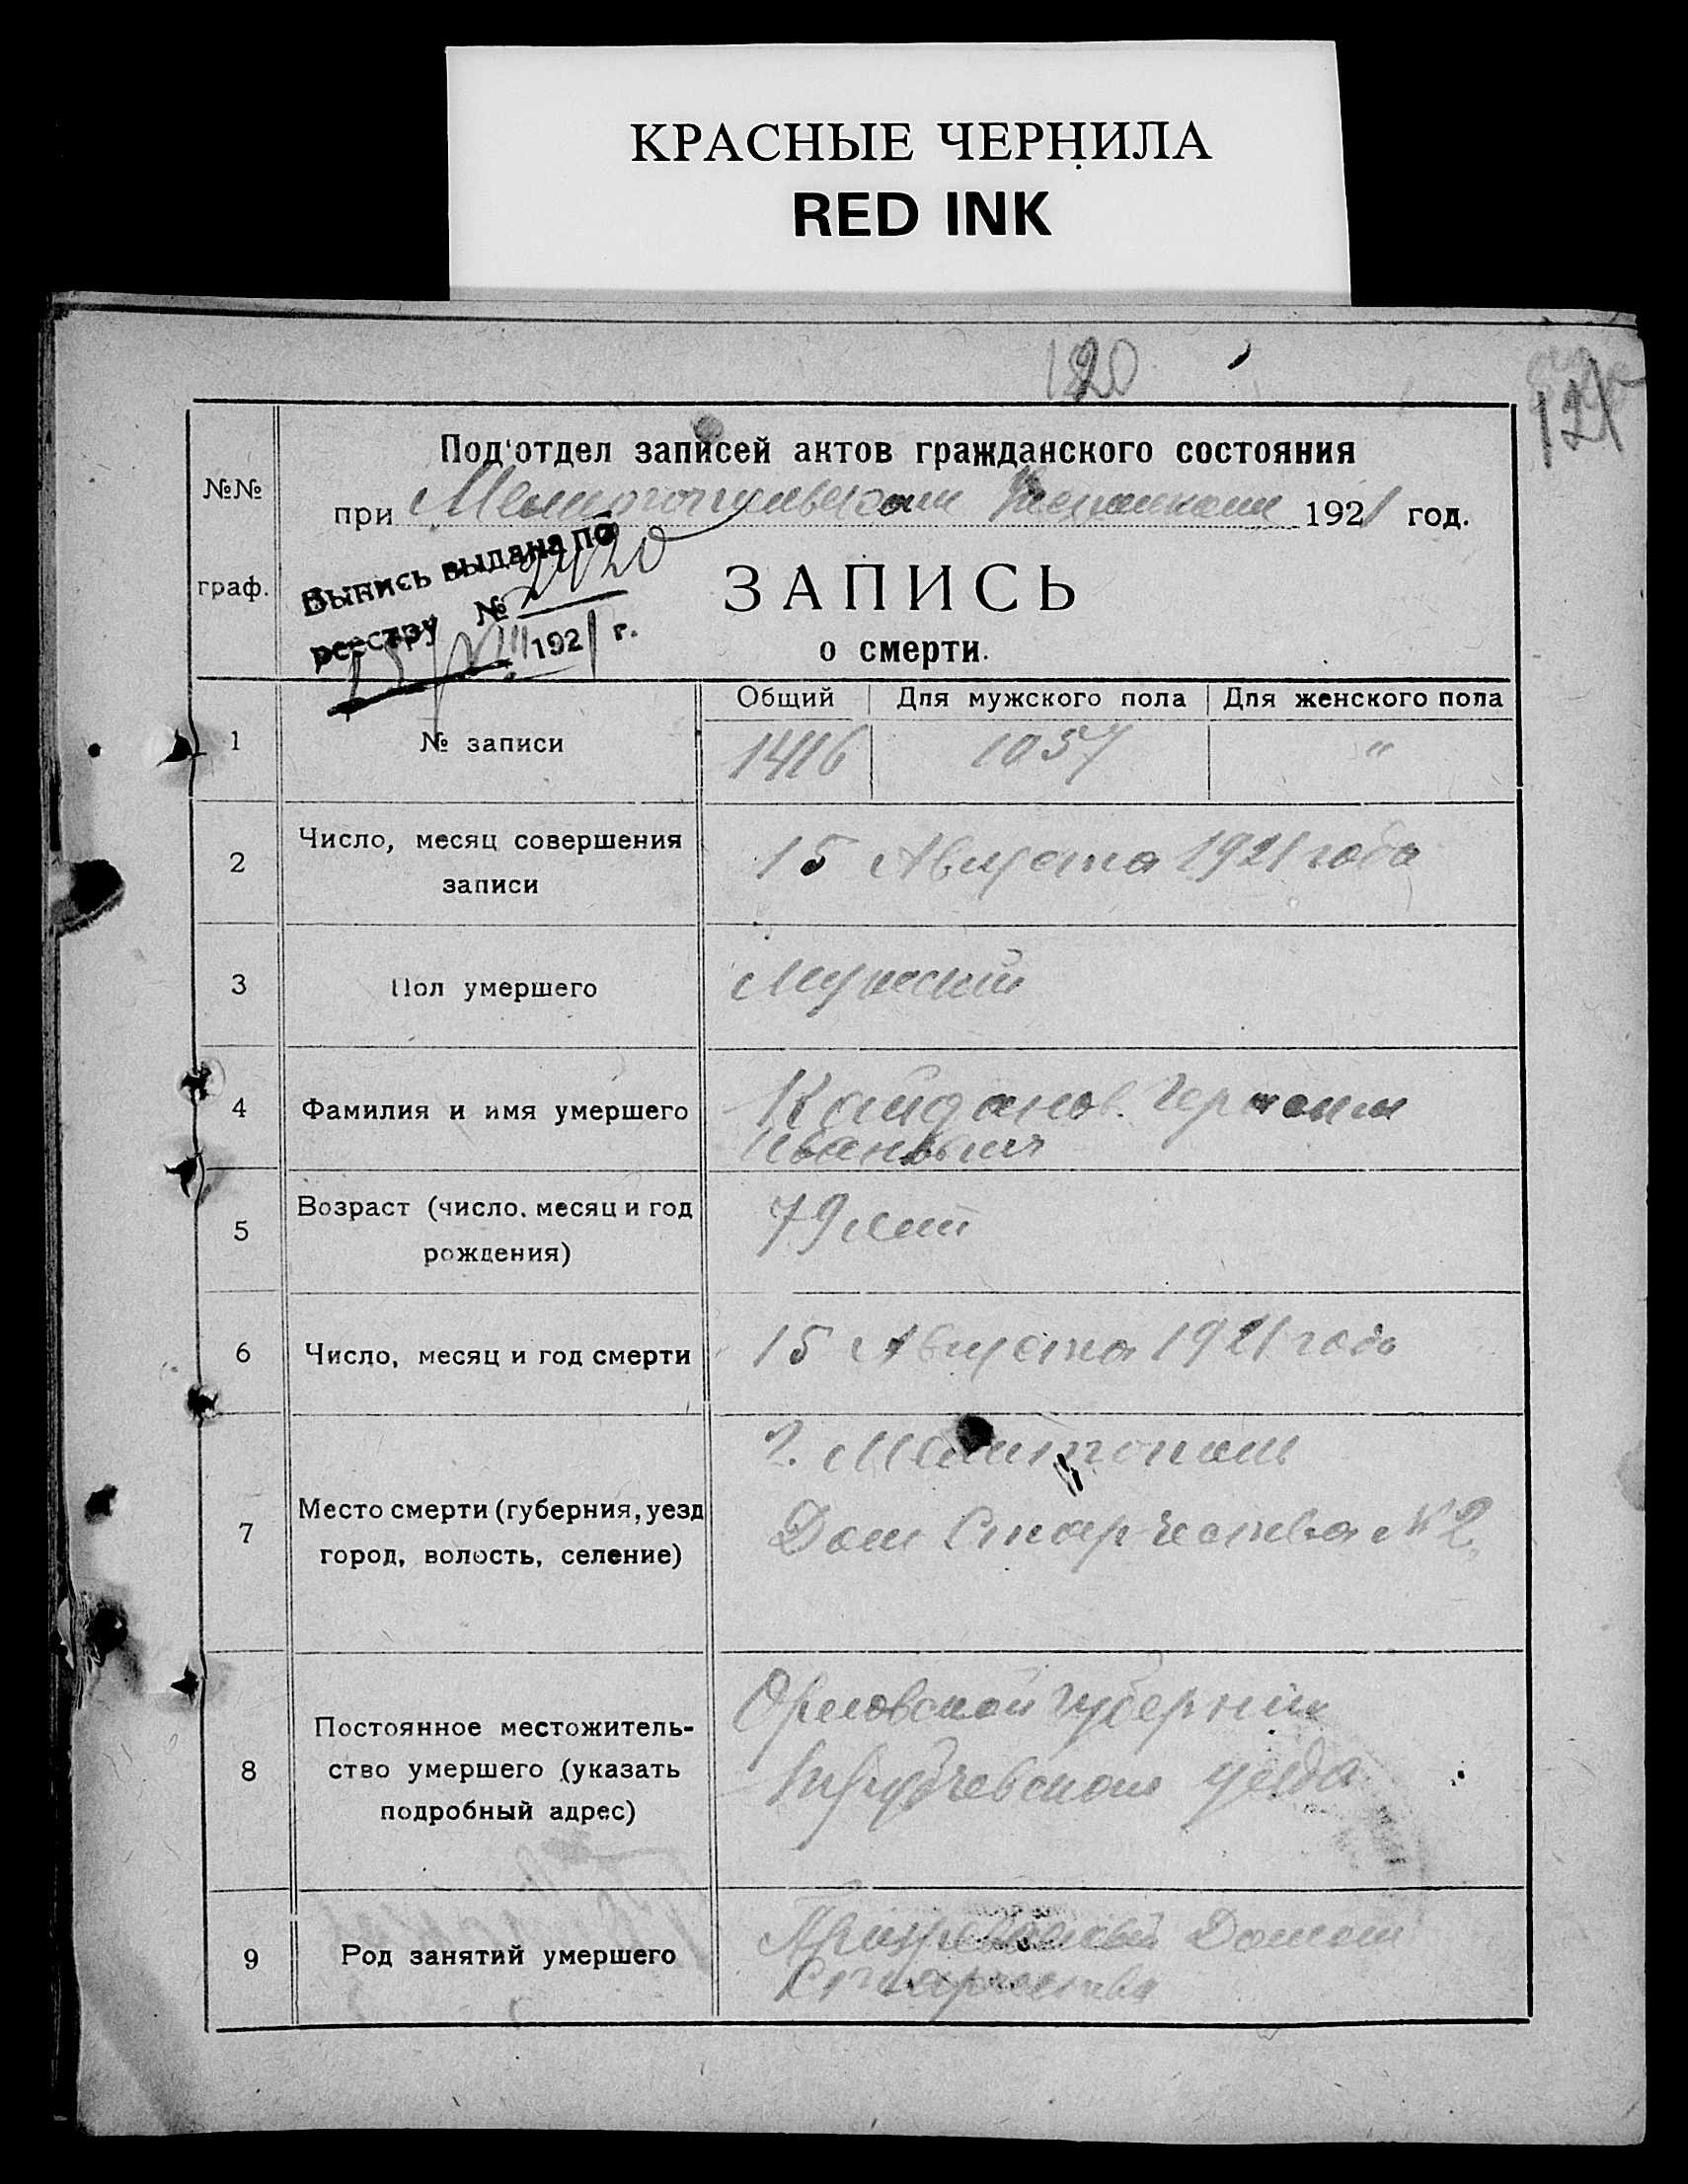 КРАСНЫЕ ЧЕРНИЛА
RED INK
120
121
Под'отдел записей актов гражданского состояния
№№
при Мелитопольском 1921 год.
граф.
Выпись выдана по
реестру №
1921 г.
ЗАПИСЬ
о смерти.
Общий Для мужского пола Для женского пола
1 № записи 1416 1057 "
2 Число, месяц совершения
записи
15 Августа 1921 года
3 Пол умершего Мужской
4 Фамилия и имя умершего Кайданов Герасим
Иванович
5 Возраст (число, месяц и год
рождения)
79 лет
6 Число, месяц и год смерти 15 Августа 1921 года
7 Место смерти (губерния, уезд
город, волость, селение)
г. Мелитополь
Дом Старчества № 2.
8 Постоянное местожитель-
ство умершего (указать
подробный адрес)
Орловской губернии
уезда
9 Род занятий умершего
Призреваемый Домом
Старчества